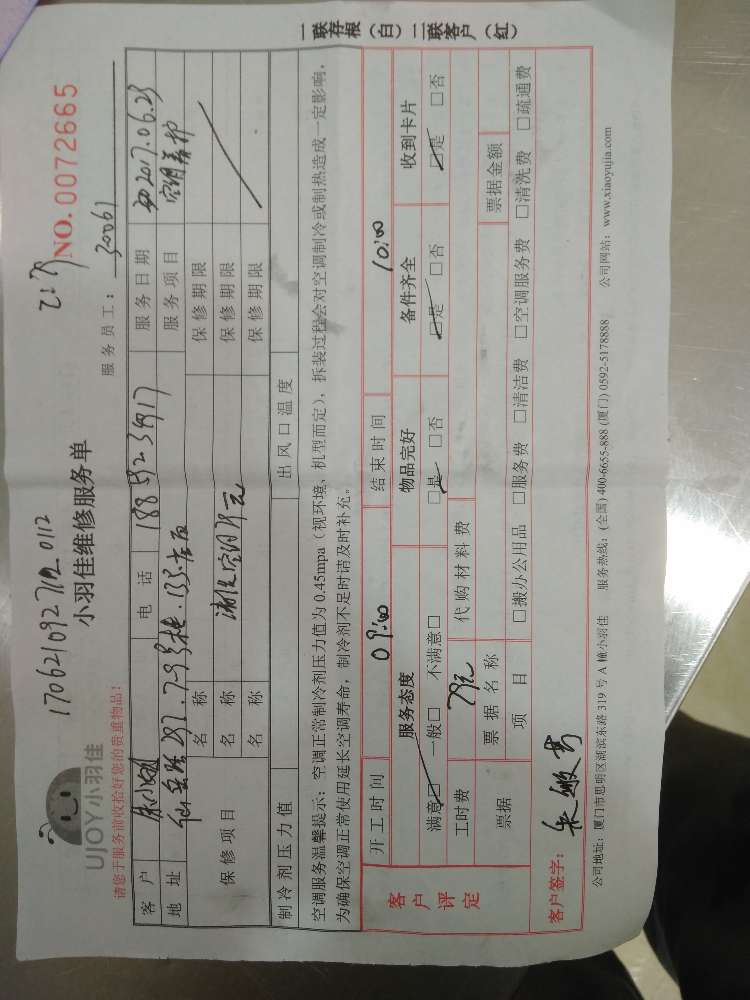 170621092712_0112
UJOY小羽佳
小羽佳维修服务单
NO. 0072665
请您于服务前收拾好您的贵重物品!
服务员工: 30061
客户
电话 18859239917
服务日期 2017.06.23
地址
服务项目 空调养护
保修项目
名称
保修期限
名称 清洗空调
保修期限
名称
保修期限
制冷剂压力值
出风口温度
空调服务温馨提示:空调正常制冷剂压力值为 0.45mpa(视环境、机型而定),拆装过程会对空调制冷或制热造成一定影响,
为确保空调正常使用延长空调寿命,制冷剂不足时请及时补充。
客户评定
开工时间 09:00
结束时间 10:00
服务态度
物品完好
备件齐全
收到卡片
满意□ 一般□ 不满意□
□是 □否
□是 □否
□是 □否
工时费 79元
代购材料费
票据
票据名称
票据金额
项目
□搬办公用品 □服务费 □清洁费 □空调服务费 □清洗费 □疏通费
客户签字:
公司地址:厦门市思明区湖滨东路 319 号 A 幢小羽佳 服务热线:(全国) 400-6655-888 (厦门) 0592-5178888 公司网站:www.xiaoyujia.com
一联存根(白)二联客户(红)